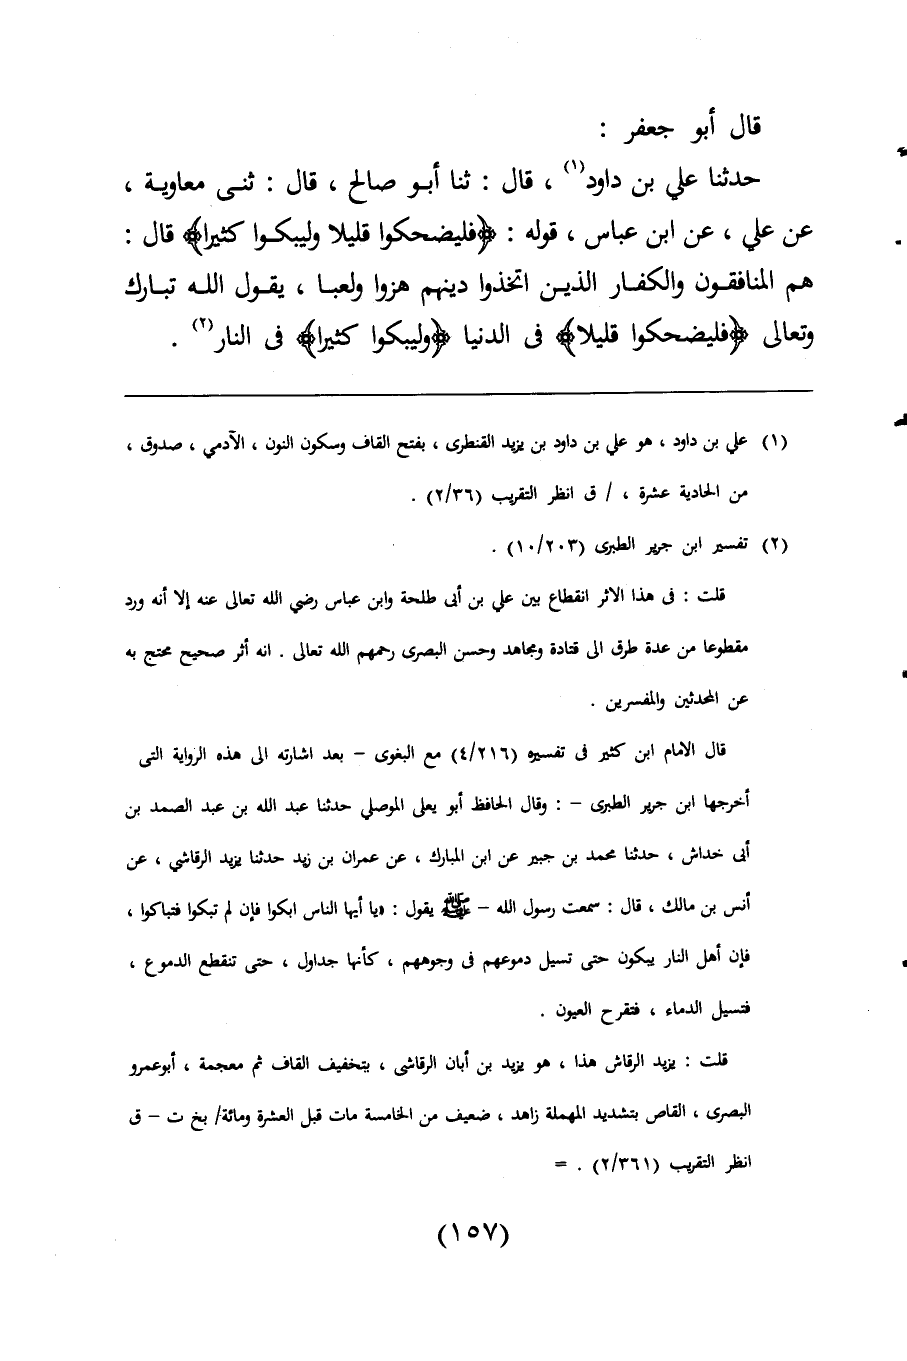 قال أبو جعفر :
حدثنا علي بن داود(١) ، قال : ثنا أبـو صالح ، قال : ثنـى معاويـة ،
عن علي ، عن ابن عباس ، قوله : ﴿فليضحكوا قليلا وليبكـوا كثيرا﴾ قال :
هم المنافقـون والكفـار الذيـن اتخذوا دينهم هزوا ولعبـا ، يقـول اللـه تبـارك
وتعالى ﴿فليضحكوا قليلا﴾ فى الدنيا ﴿وليبكوا كثيرا﴾ فى النار(٢) .
(١) علي بن داود ، هو علي بن داود بن يزيد القنطرى ، بفتح القاف وسكون النون ، الآدمي ، صدوق ،
من الحادية عشرة ، / ق انظر التقريب (٢/٣٦) .
(٢) تفسير ابن جرير الطبرى (١٠/٢٠٣) .
قلت : فى هذا الاثر انقطاع بين علي بن أبى طلحة وابن عباس رضي الله تعالى عنه إلا أنه ورد
مقطوعا من عدة طرق الى قتادة ومجاهد وحسن البصرى رحمهم الله تعالى . انه أثر صحيح محتج به
عن المحدثين والمفسرين .
قال الامام ابن كثير فى تفسيره (٤/٢١٦) مع البغوى – بعد اشارته الى هذه الرواية التى
أخرجها ابن جرير الطبرى – : وقال الحافظ أبو يعلى الموصلي حدثنا عبد الله بن عبد الصمد بن
أبى خداش ، حدثنا محمد بن جبير عن ابن المبارك ، عن عمران بن زيد حدثنا يزيد الرقاشي ، عن
أنس بن مالك ، قال : سمعت رسول الله – ﷺ يقول : «يا أيها الناس ابكوا فإن لم تبكوا فتباكوا ،
فإن أهل النار يبكون حتى تسيل دموعهم فى وجوههم ، كأنها جداول ، حتى تنقطع الدموع ،
فتسيل الدماء ، فتقرح العيون .
قلت : يزيد الرقاش هذا ، هو يزيد بن أبان الرقاشي ، بتخفيف القاف ثم معجمة ، أبوعمرو
البصرى ، القاص بتشديد المهملة زاهد ، ضعيف من الخامسة مات قبل العشرة ومائة/ بخ ت – ق
انظر التقريب (٢/٣٦١) . =
(١٥٧)